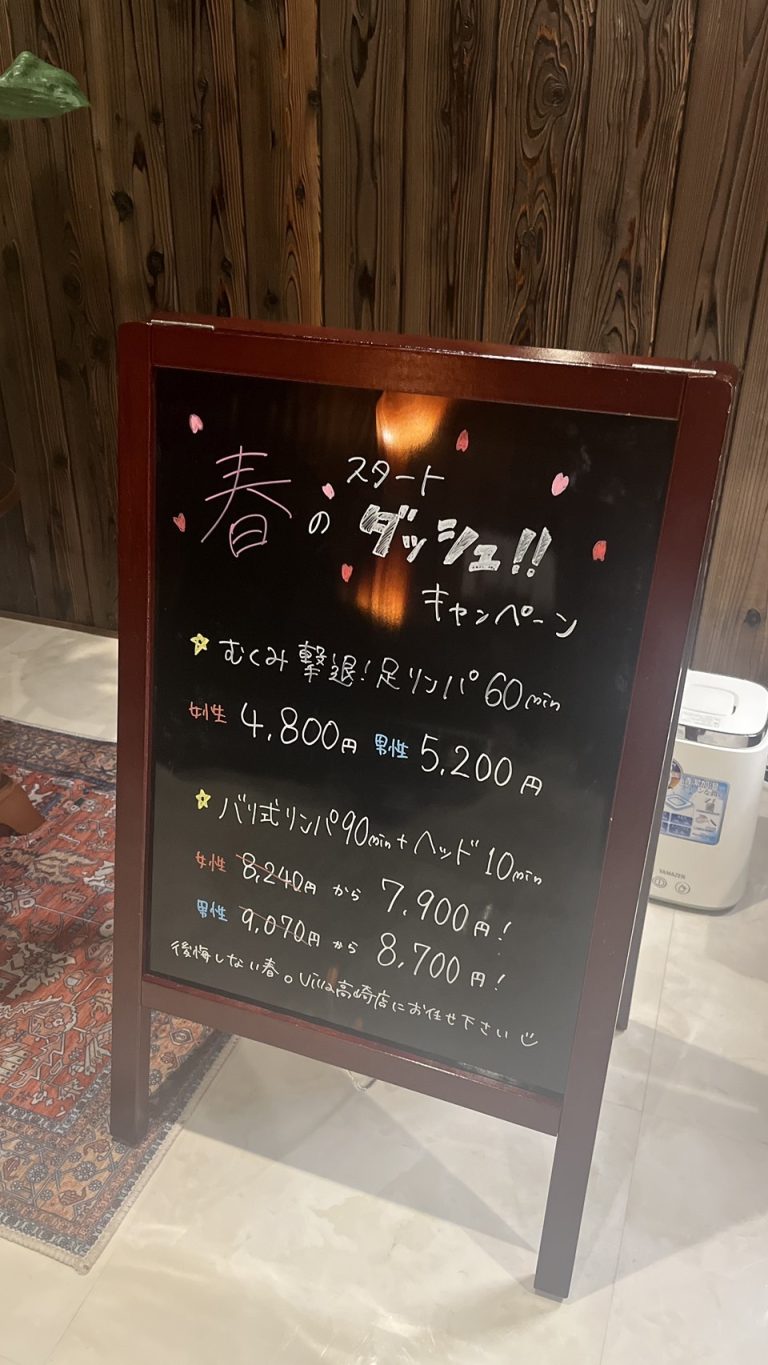 春のスタートダッシュ!!
キャンペーン
むくみ撃退!足リンパ60min
女性 4,800円 男性 5,200円
バリ式リンパ90min+ヘッド10min
女性 8,240円 から 7,900円!
男性 9,070円 から 8,700円!
後悔しない春。Villa高崎店にお任せ下さい
YAMAZEN